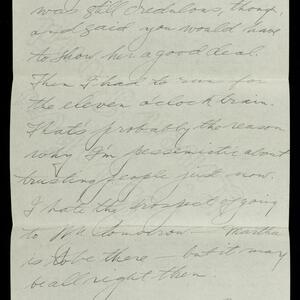 was still credulous, though,
and said you would have
to show her a good deal.
Then I had to run for
the eleven o'clock train.
That's probably the reason
why I'm pessimistic about
trusting people just now.
I hate the prospect of going
to tomorrow — Martha
is to be there — but it may
be all right then.